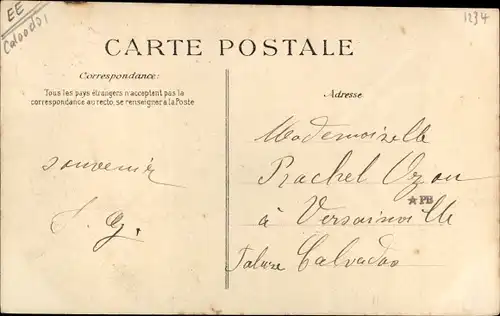 EE
Calvados
1234
CARTE POSTALE
Correspondance:
Tous les pays étrangers n'acceptent pas la
correspondance au recto, se renseigner à la Poste
Adresse
souvenir
Mademoiselle
Rachel Ozou
★PB
à Versainville
Falaise Calvados